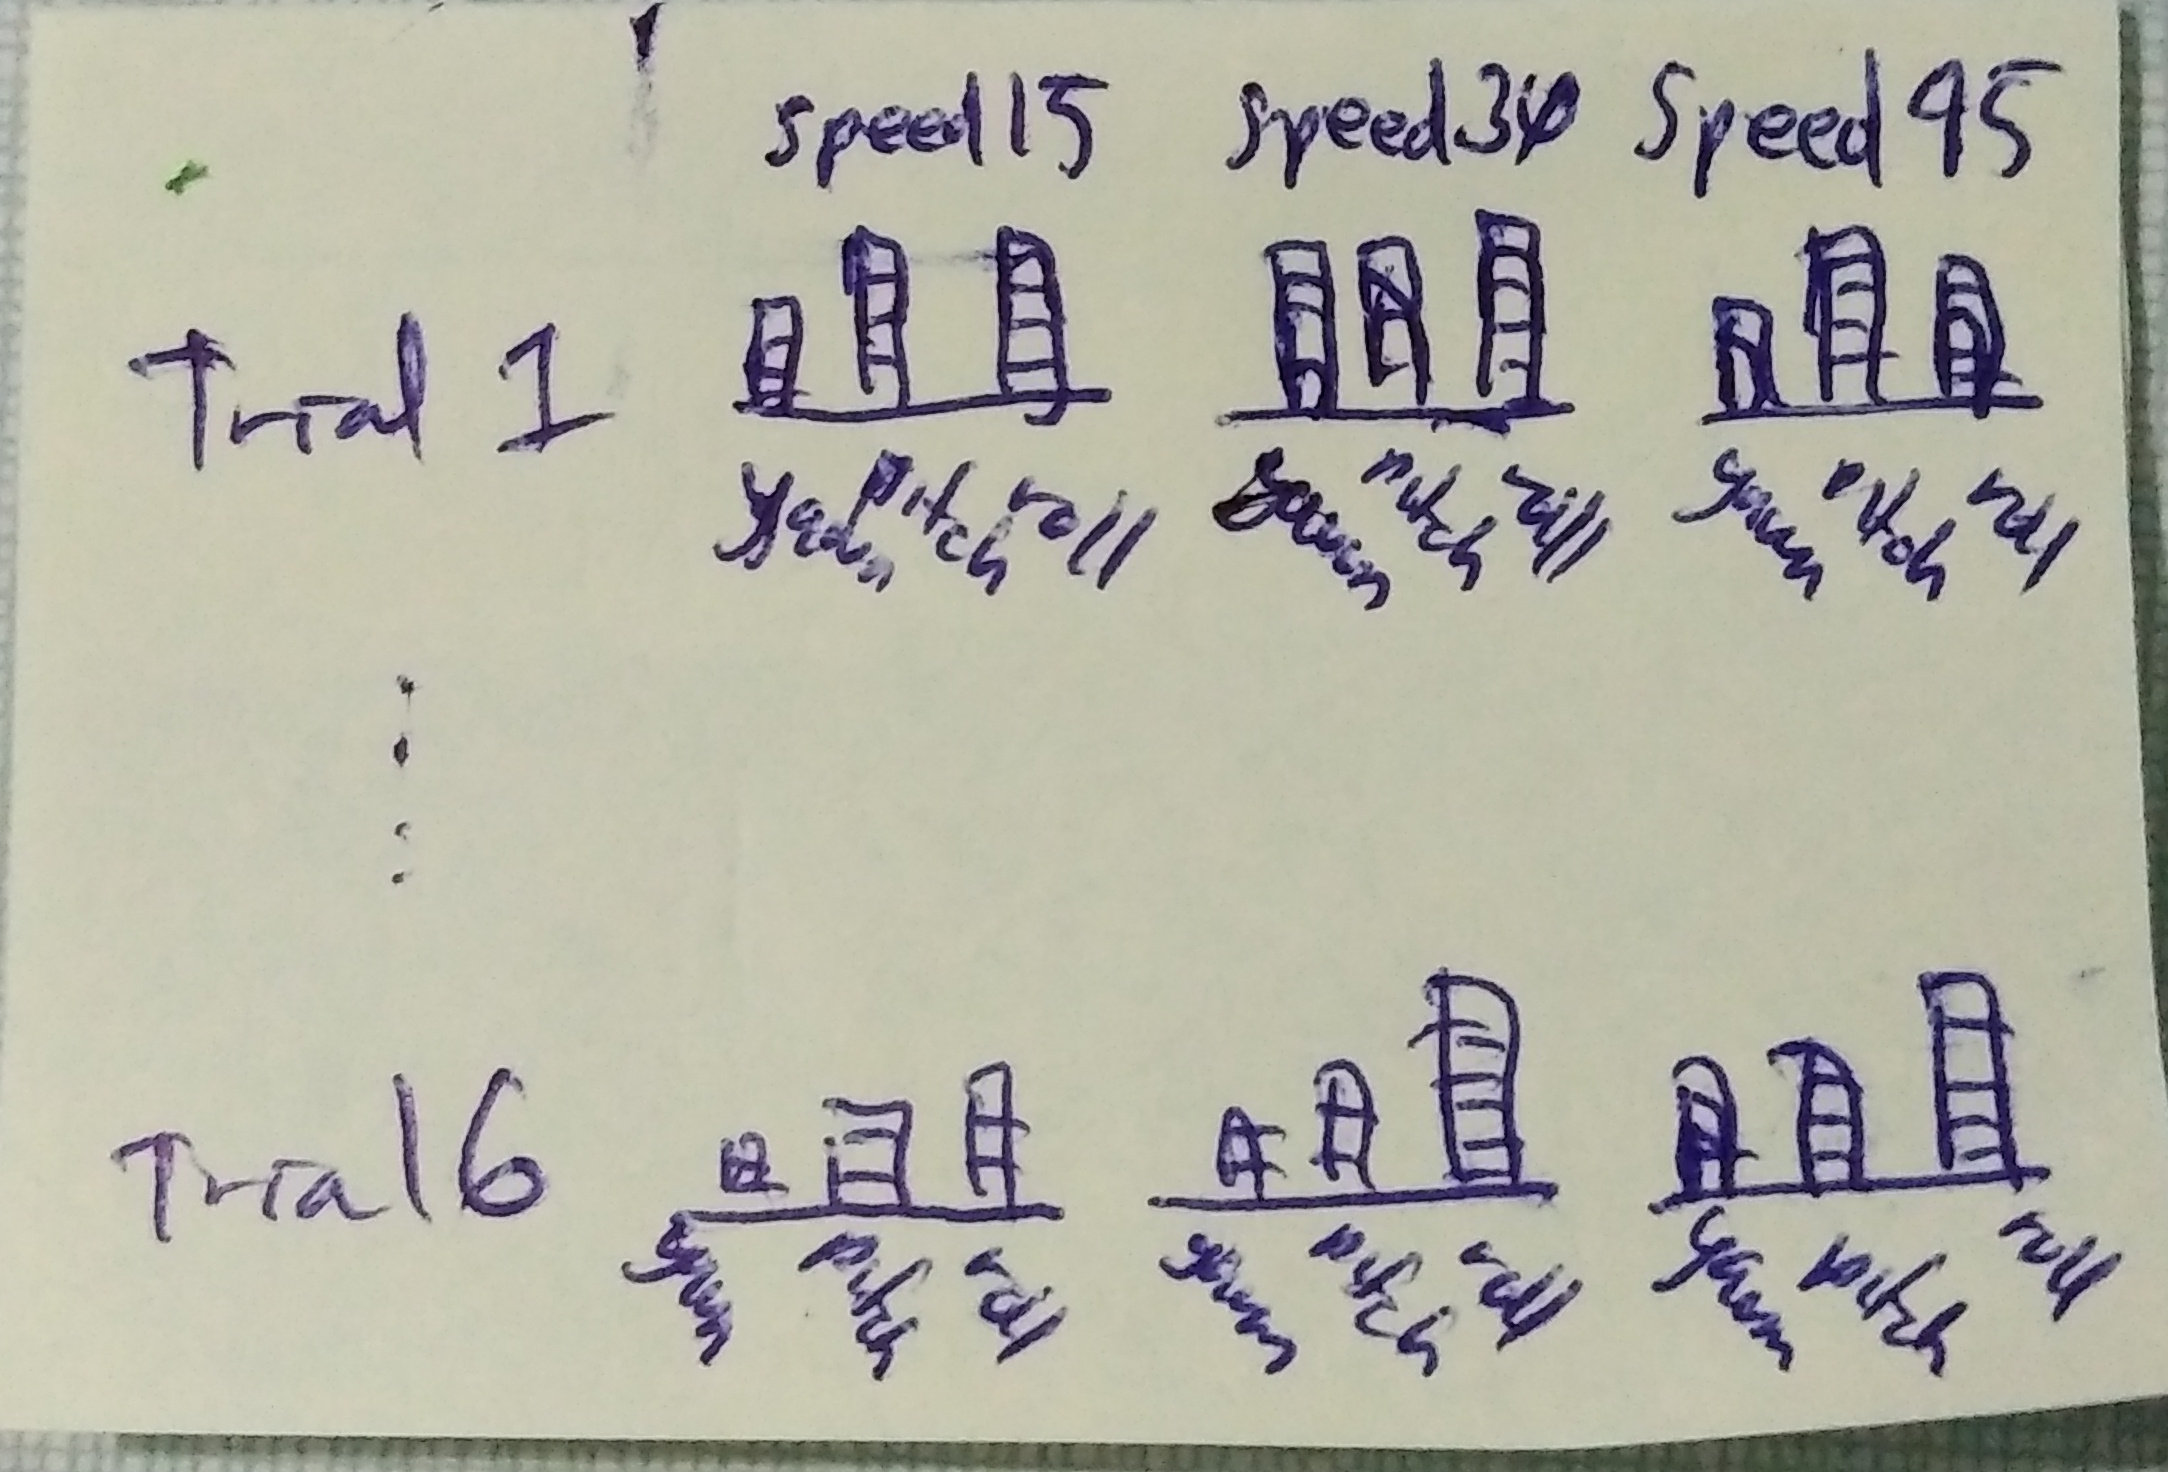 speed 15 speed 30 Speed 45
Trial 1
yawn pitch roll yawn pitch roll yawn pitch roll
Trial 6
yawn pitch roll yawn pitch roll yawn pitch roll